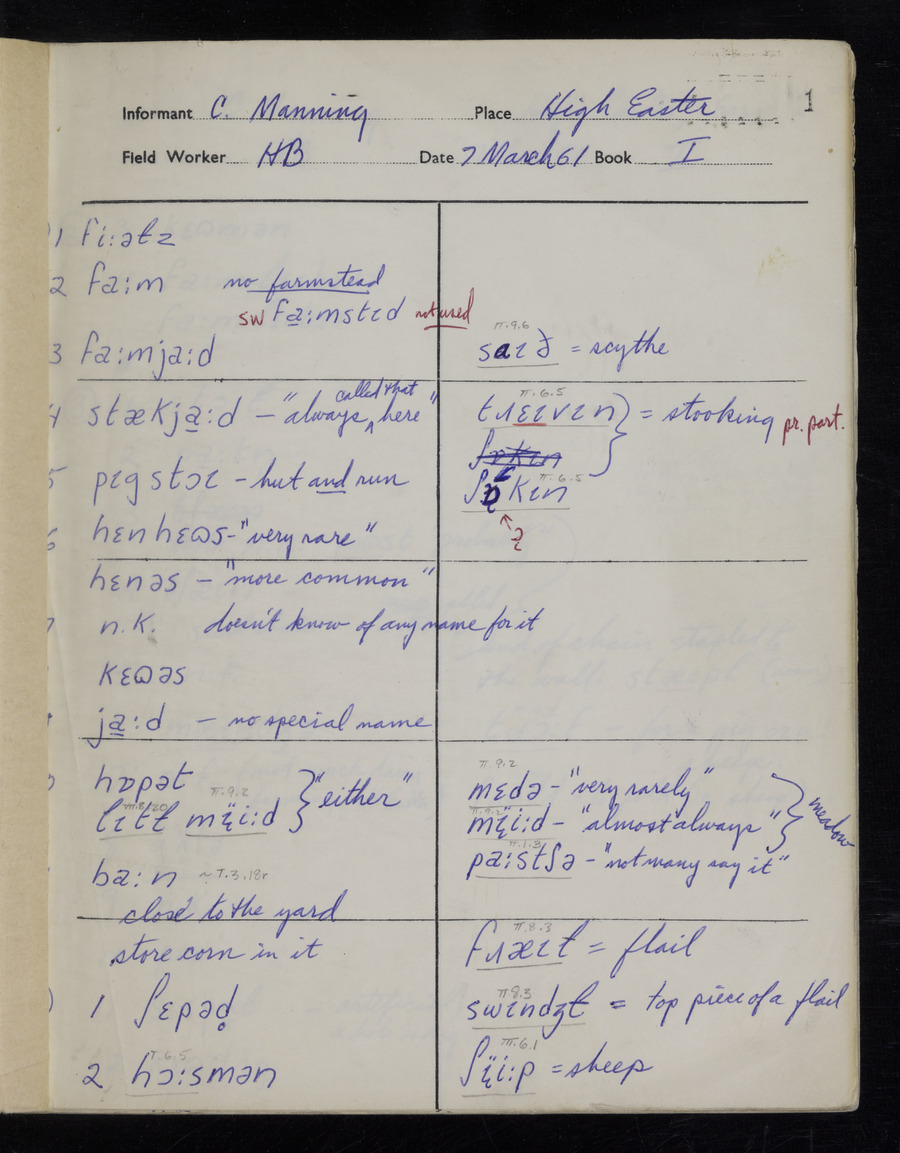 1
Informant C. Manning Place High Easter
Field Worker HB Date 7 March 61 Book I
1 fi:əɫz
2 fa:m no farmstead
sw fa̠:mstɪd not used
3 fa:mja:d
4 stækja̠:d – "always ^ called that here"
5 pɪgstɔɪ – hut and run
hɛnhɛɷs – "very rare"
hɛnəs – "more common"
n.K. doesn't know of any name for it
kɛɷəs
ja̠:d – no special name
hɒpət
lɪtɫ mïi:d } "either"
II.9.2
ba:n ~ I.3.18r
close to the yard
store corn in it
1 ʃɛpəd̥
I.6.5
2 hɔ:smən
II.9.6
saɪð = scythe
II.6.5
= stooking pr. part.
II.6.5
II.9.2
mɛdə – "very rarely"
II.9.2
mïi:d – "almost always" } meadow
II.1.3
pa:stʃə – "not many say it"
II.8.3
= flail
II.8.3
swɪndʒɫ = top piece of a flail
III.6.1
ʃïi:p = sheep